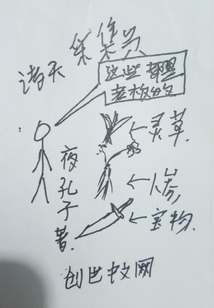 诸天采集员
这些都是
老板的
灵草
人参
宝物
夜孔子
著
创世中文网